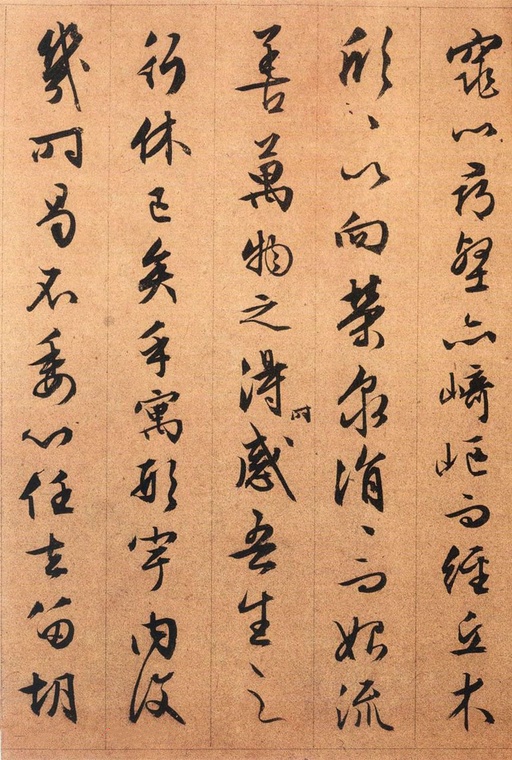 窕以尋壑亦崎嶇而經丘木
欣〻以向榮泉涓〻而始流
善萬物之得時感吾生之
行休已矣乎寓形宇內復
幾時曷不委心任去留胡